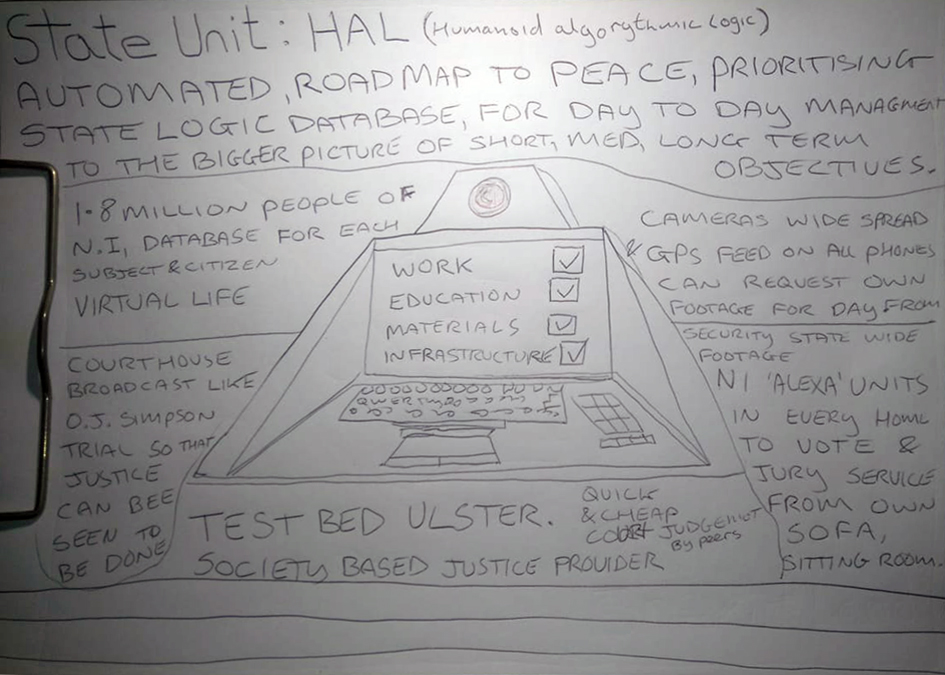 State Unit: HAL (Humanoid algorythmic Logic)
AUTOMATED, ROAD MAP TO PEACE, PRIORITISING
STATE LOGIC DATABASE, FOR DAY TO DAY MANAGMENT
TO THE BIGGER PICTURE OF SHORT, MED, LONG TERM
OBJECTIVES.
1.8 MILLION PEOPLE OF
N.I, DATABASE FOR EACH
SUBJECT & CITIZEN
VIRTUAL LIFE
WORK
EDUCATION
MATERIALS
INFRASTRUCTURE
CAMERAS WIDE SPREAD
& GPS FEED ON ALL PHONES
CAN REQUEST OWN
FOOTAGE FOR DAY FROM
SECURITY STATE WIDE
FOOTAGE
COURTHOUSE
BROADCAST LIKE
O.J. SIMPSON
TRIAL SO THAT
JUSTICE
CAN BEE
SEEN TO
BE DONE
NI 'ALEXA' UNITS
IN EVERY HOME
TO VOTE &
JURY SERVICE
FROM OWN
SOFA,
SITTING ROOM.
TEST BED ULSTER.
SOCIETY BASED JUSTICE PROVIDER
QUICK
& CHEAP
COURT JUDGEMENT
By peers